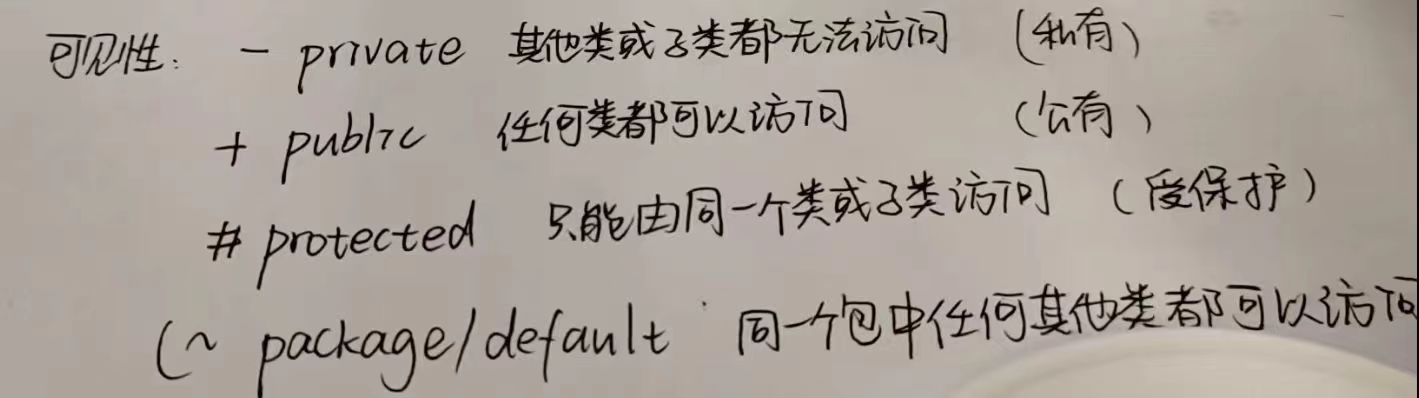 可见性: - private 其他类或子类都无法访问 (私有)
+ public 任何类都可以访问 (公有)
# protected 只能由同一个类或子类访问 (受保护)
(~ package/default 同一个包中任何其他类都可以访问